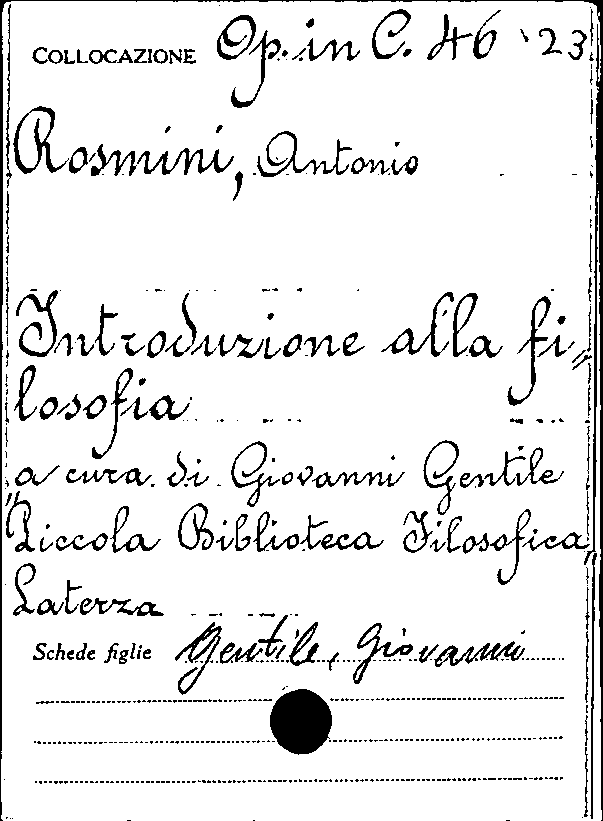 COLLOCAZIONE Op. in C. 46 '23
Rosmini, Antonio
Introduzione alla fi„
losofia
a cura di Giovanni Gentile
"Piccola Biblioteca Filosofica„
Laterza
Schede figlie Gentile, Giovanni